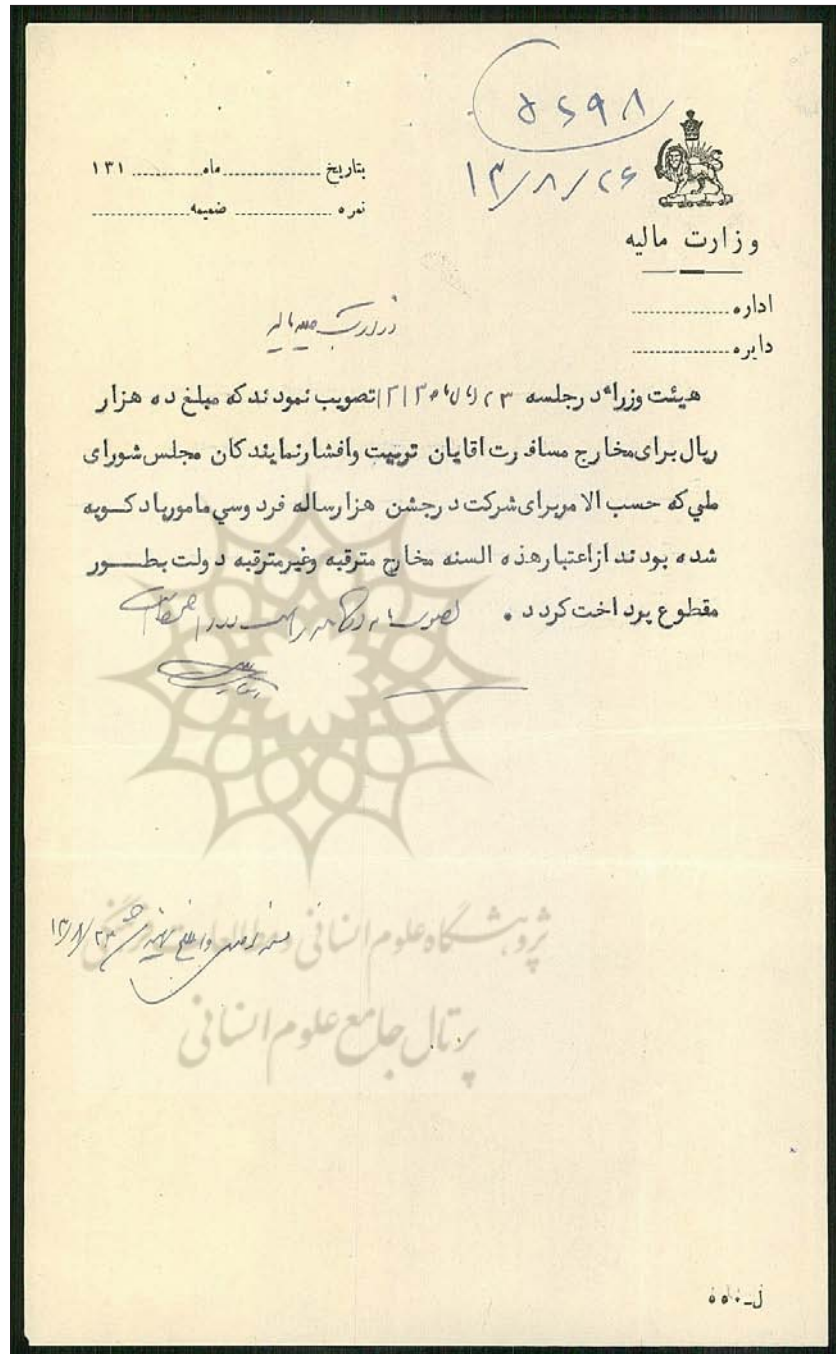 ۵۶۹۸
۱۳/۸/۲۶
بتاریخ ............ ماه ............ ۱۳۱
نمره ............ ضمیمه ............
وزارت مالیه
اداره ............
دایره ............
وزارت جلیله مالیه
هیئت وزراء در جلسه ۲۳ آبانماه ۱۳۱۳ تصویب نمودند که مبلغ ده هزار
ریال برای مخارج مسافرت اقایان تربیت وافشار نمایندکان مجلس شورای
ملي که حسب الامر برای شرکت در جشن هزار ساله فردوسي مامور بادکوبه
شده بودند از اعتبار هذه السنه مخارج مترقبه وغیر مترقبه دولت بطور
مقطوع پرداخت کردد .
۱۳/۸/۲۳
پژوهشگاه علوم انسانی و مطالعات فرهنگی
پرتال جامع علوم انسانی
ل-۵۵۰